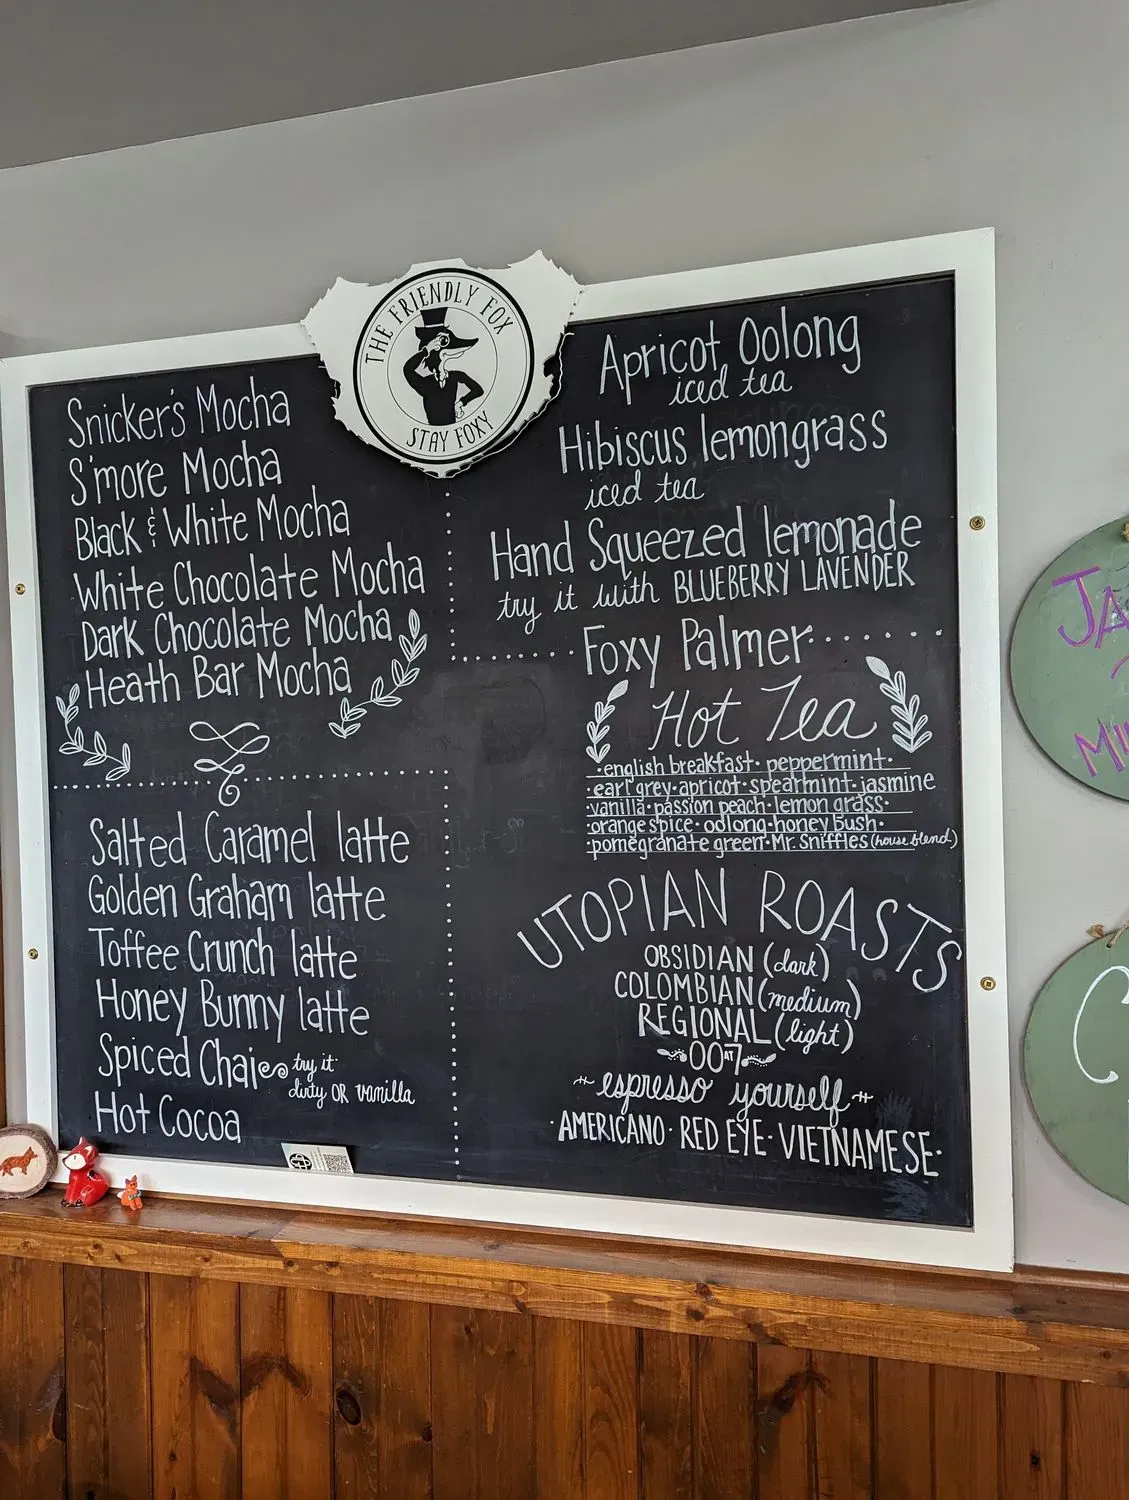 THE FRIENDLY FOX
STAY FOXY
Snicker's Mocha
S'more Mocha
Black & White Mocha
White Chocolate Mocha
Dark Chocolate Mocha
Heath Bar Mocha
Salted Caramel latte
Golden Graham latte
Toffee Crunch latte
Honey Bunny latte
Spiced Chai try it
dirty OR vanilla
Hot Cocoa
Apricot Oolong
iced tea
Hibiscus lemongrass
iced tea
Hand Squeezed lemonade
try it with BLUEBERRY LAVENDER
Foxy Palmer
Hot Tea
·english breakfast· peppermint·
·earl grey·apricot·spearmint·jasmine
·vanilla·passion peach·lemon grass·
·orange spice·oolong·honey bush·
·pomegranate green·Mr. Sniffles (house blend)
UTOPIAN ROASTS
OBSIDIAN (dark)
COLOMBIAN (medium)
REGIONAL (light)
espresso yourself
·AMERICANO·RED EYE·VIETNAMESE·
JA
MI
C